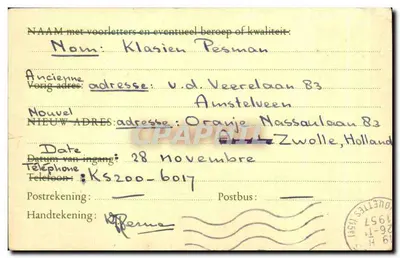 NAAM met voorletters en eventueel beroep of kwaliteit:
Nom: Klasien Pesman
Ancienne
Vorig adres: adresse: v.d. Veerelaan 83
Amstelveen
Nouvel
NIEUW ADRES: adresse: Oranje Nassaulaan 83
Zwolle, Holland
Date
Datum van ingang: 28 novembre
Téléphone
Telefoon: KS200-6017
Postrekening: Postbus:
Handtekening:
CHAPITRE.COM
1957